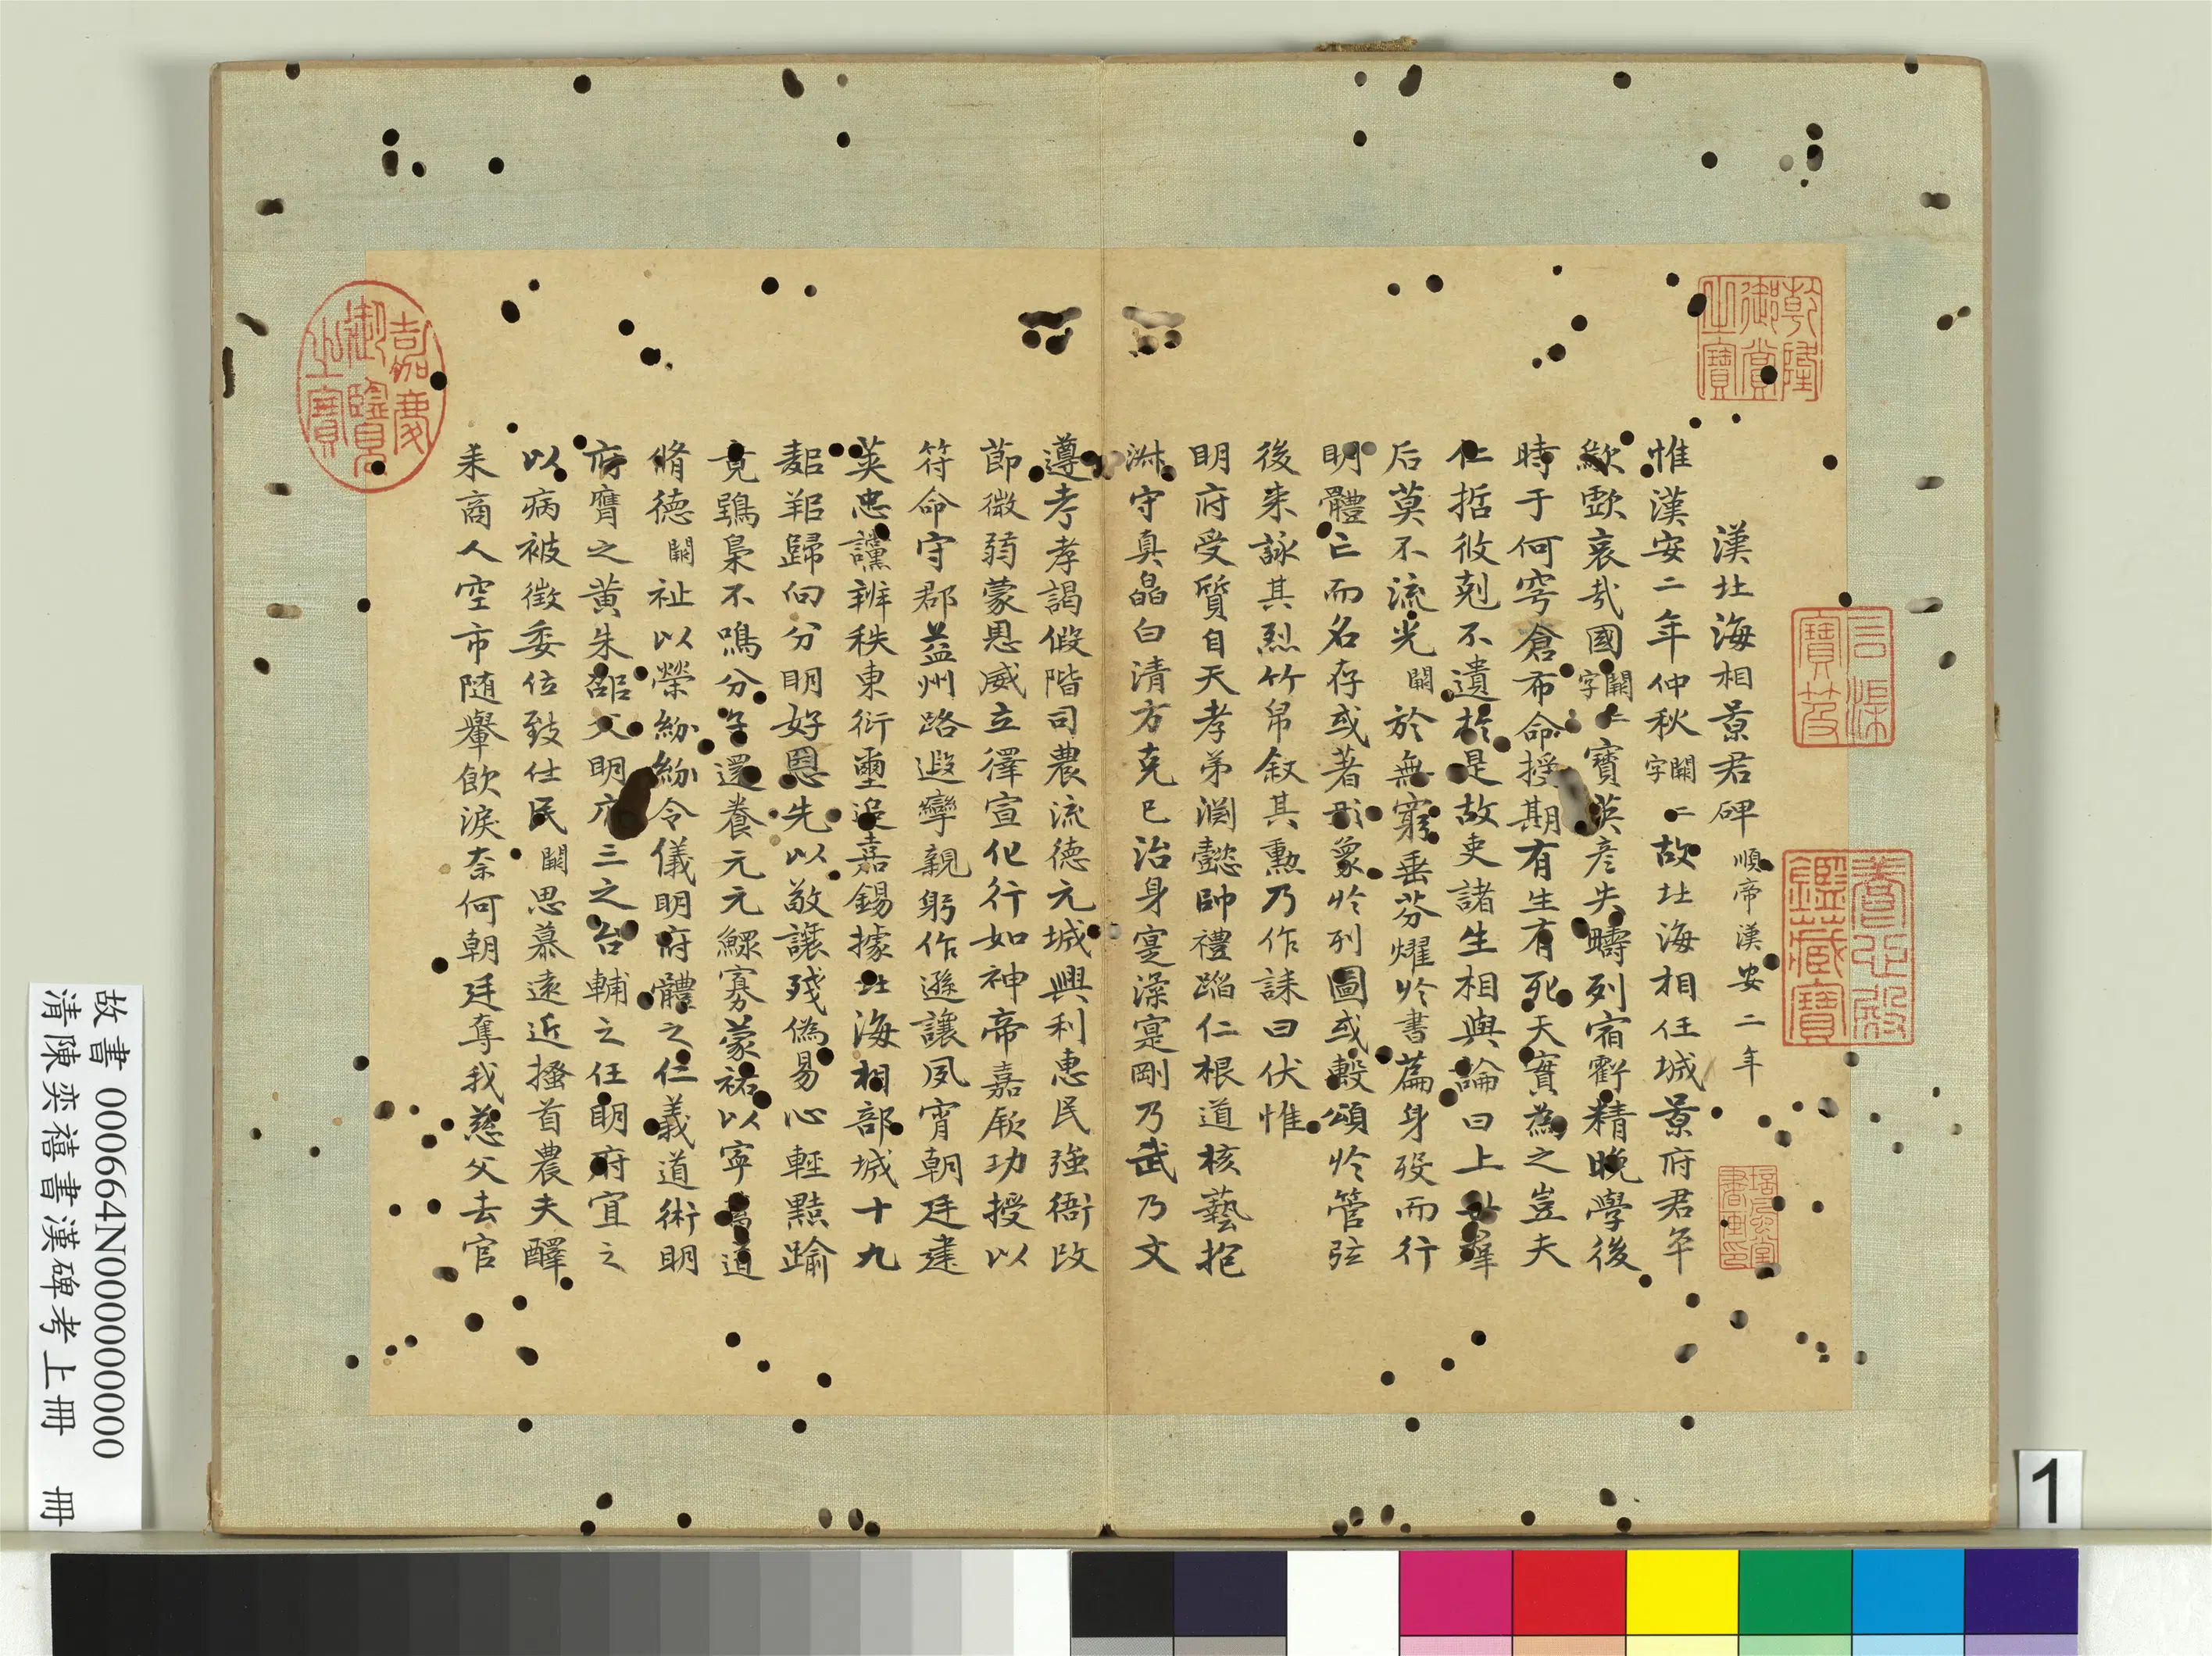 漢北海相景君碑 順帝漢安二年
惟漢安二年仲秋闕二字故北海相任城景府君卒
歍歔哀哉國闕二字寶英彦失疇列宿虧精晚學後
時于何穹倉布命授期有生有死天寔為之豈夫
仁哲攸剋不遺於是故吏諸生相與論曰上世羣
后莫不流光闕於無窮垂芬燿於書篇身歿而行
明體亡而名存或著形象於列圖或轂頌於管弦
後来詠其烈竹帛叙其勲乃作誄曰伏惟
明府受質自天孝弟淵懿帥禮蹈仁根道核藝抱
淋守真皛白清方克己治身寔澡寔剛乃武乃文
遵考孝謁假階司農流德元城興利惠民強衙改
節微弱蒙恩威立澤宣化行如神帝嘉厥功授以
符命守郡益州路遐攣親躬作遜讓夙宵朝廷建
英忠讜辨秩東衍璽追嘉錫據北海相部城十九
鄰邦歸向分明好惡先以敬讓殘偽易心輕黠踰
竟鴞梟不鳴分子還養元元鰥寡蒙祐以寧
道
脩德闕祉以榮紛紛令儀明府體之仁義道術明
府膺之黄朱邵父明府三之台輔之任明府宜之
以病被徴委位致仕民闕思慕遠近搔首農夫醳
耒商人空市随轝飲淚奈何朝廷奪我慈父去官
乾隆御賞之寶
嘉慶御覽之寶
石渠寶笈
養心殿鑑藏寶
故書 000664N000000000
清陳奕禧書漢碑考上冊 冊
1